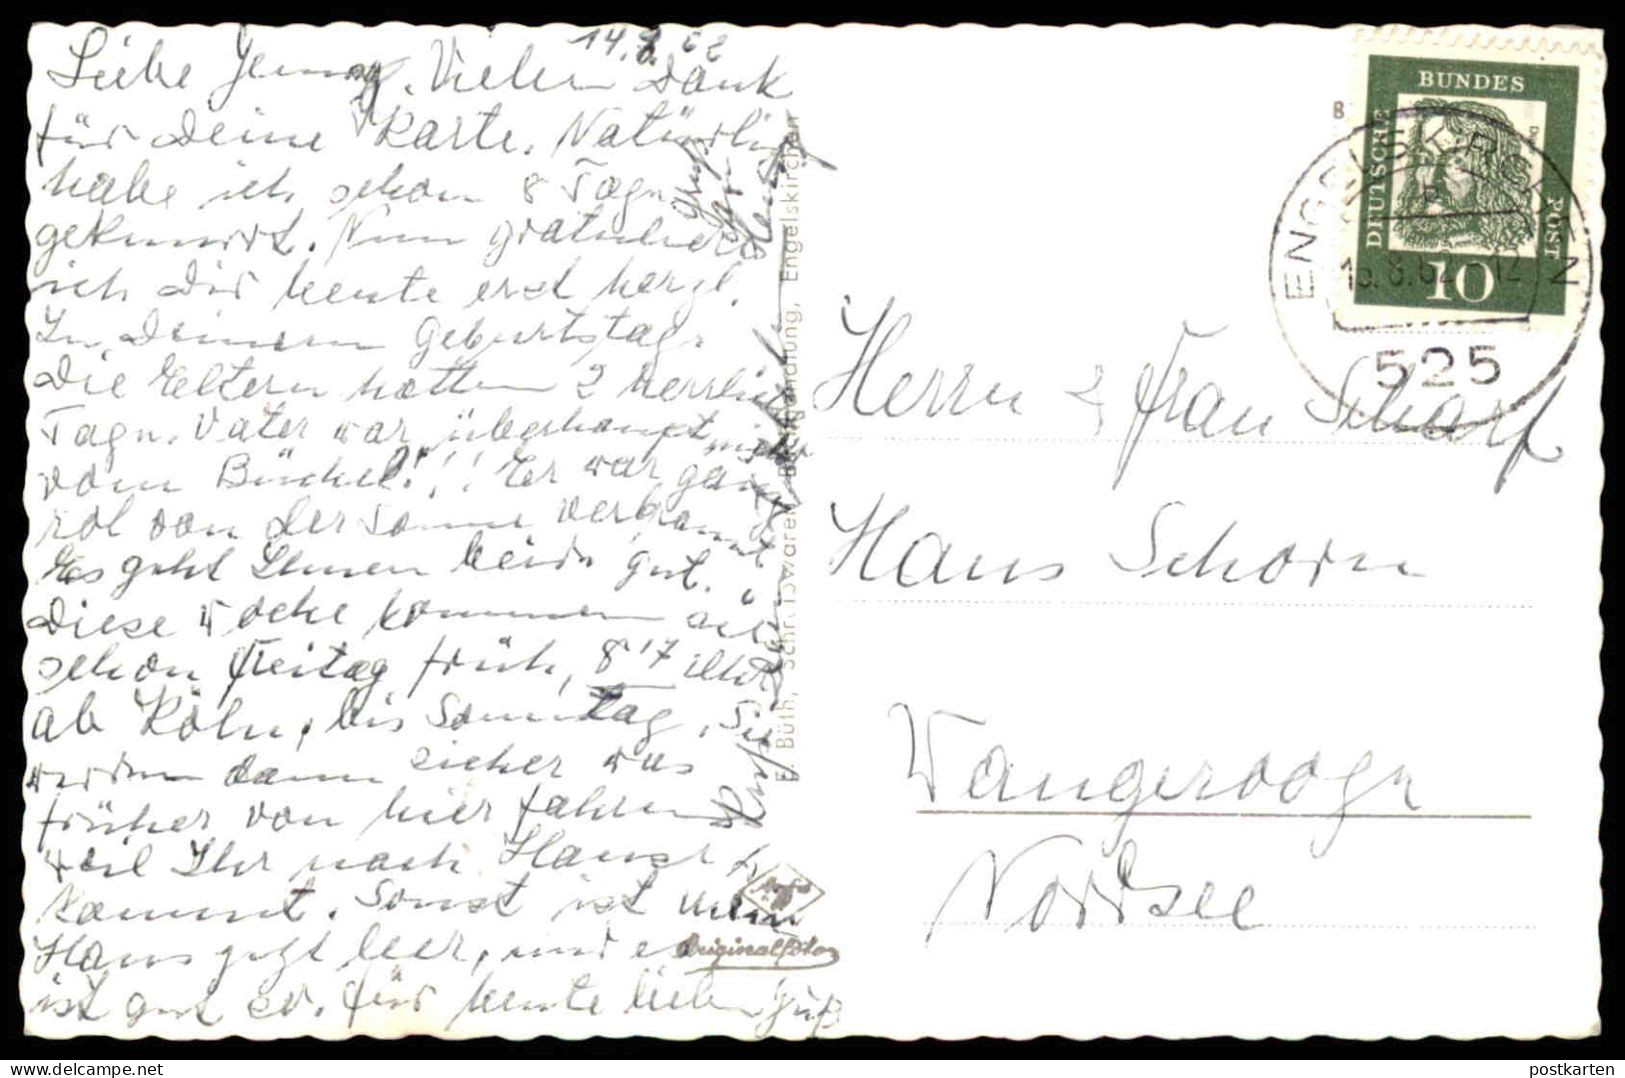 14.8.62
Liebe Jenny. Vielen Dank
für Deine Karte. Natürlich
habe ich schon 8 Tage
geknurrt. Nun gratuliere
ich Dir heute erst herzl.
zu Deinem Geburtstag.
Die Eltern hatten 2 herrliche
Tage. Vater war überhaupt nicht
vom Bückel!!! Er war ganz
rot von der Sonne verbrannt
Es geht Ihnen beide gut.
Diese Woche kommen
schon Freitag früh, 8 17 Uhr
ab Köln, bis Sonntag. Sie
werden dann sicher was
früher von hier fahren
weil Ihr nach Hause
kommt. Sonst ist mein
Haus jetzt leer, und es
ist gut so. Für heute lieben Gruß
E. Büth, Schreibwaren, Buchhandlung, Engelskirchen
Originalfoto
BUNDES
DEUTSCHE
POST
10
ENGELSKIRCHEN
15.8.62-12
525
Herrn & Frau Scharf
Haus Schorn
Wangerooge
Nordsee
postkarten